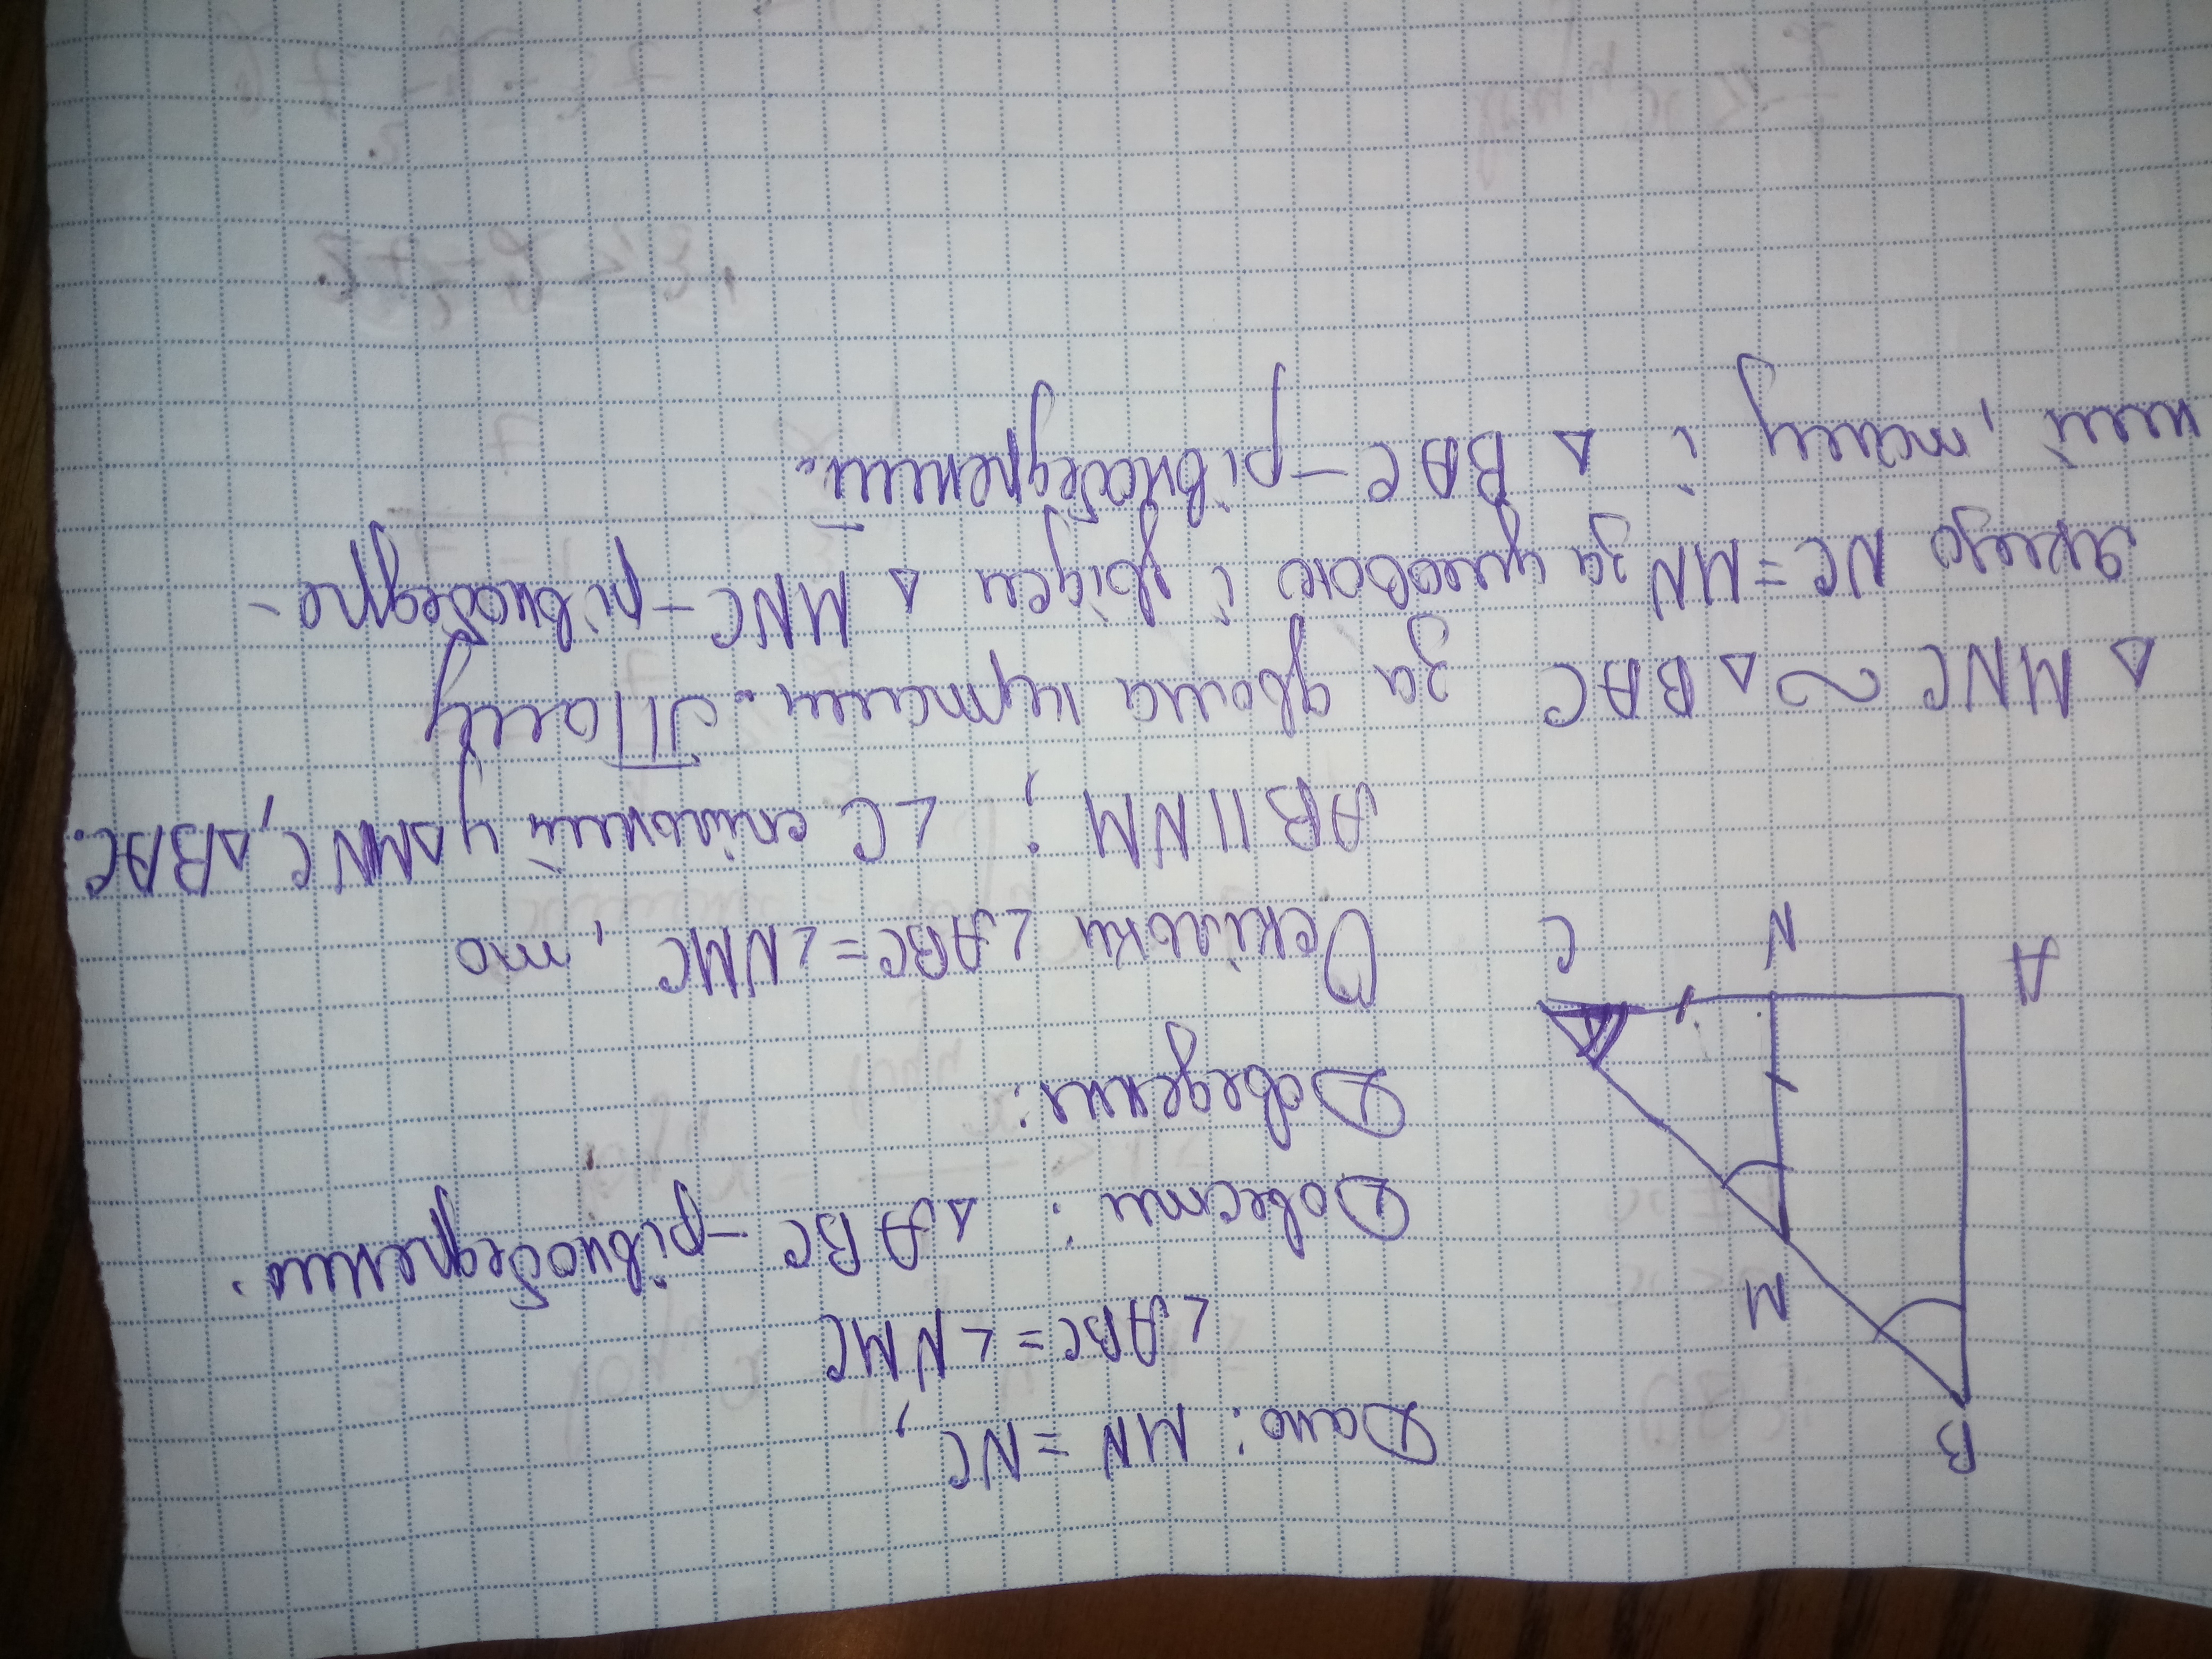 B
Дано: MN = NC,
<ABC = <NMC
M
Довести: △ABC – рівнобедрений.
Доведення:
A
N
C
Оскільки <ABC = <NMC, то
AB || NM; <C спільний у △MNC, △BAC.
△MNC ~ △BAC за двома кутами. Тому
якщо NC = MN за умовою і звідси △MNC – рівнобедре-
ний, тому і △BAC – рівнобедрений.